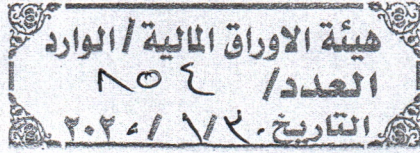 هيئة الاوراق المالية / الوارد
العدد / ٨٥٤
التاريخ ٣٠ / ١ / ٢٠٢٠